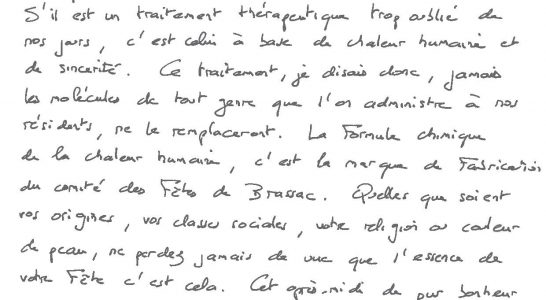 S'il est un traitement thérapeutique trop oublié de
nos jours, c'est celui à base de chaleur humaine et
de sincérité. Ce traitement, je disais donc, jamais
les molécules de tout genre que l'on administre à nos
résidents, ne le remplaceront. La Formule chimique
de la chaleur humaine, c'est la marque de Fabrication
du comité des Fêtes de Brassac. Quelles que soient
vos origines, vos classes sociales, votre religion ou couleur
de peau, ne perdez jamais de vue que l'essence de
votre Fête c'est cela. Cet après-midi de pur bonheur